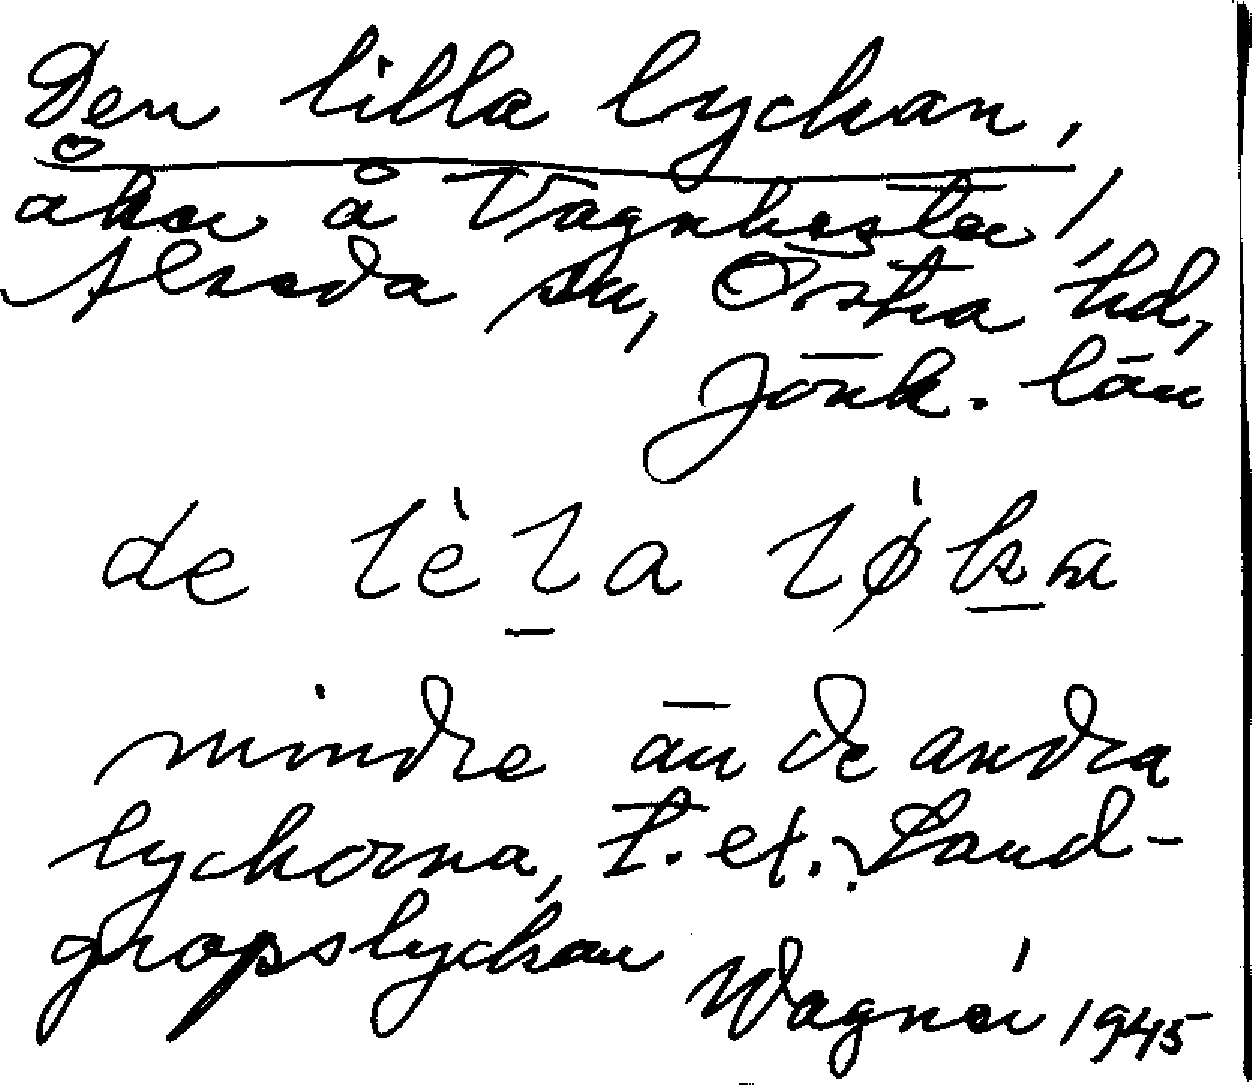 Den lilla lyckan,
åker å Vagnhester,
Alseda sn, Östra hd,
Jönk. län
de lèla løka
mindre än de andra
lyckorna, t. ex. Sand-
gropslyckan
Wagnér 1945